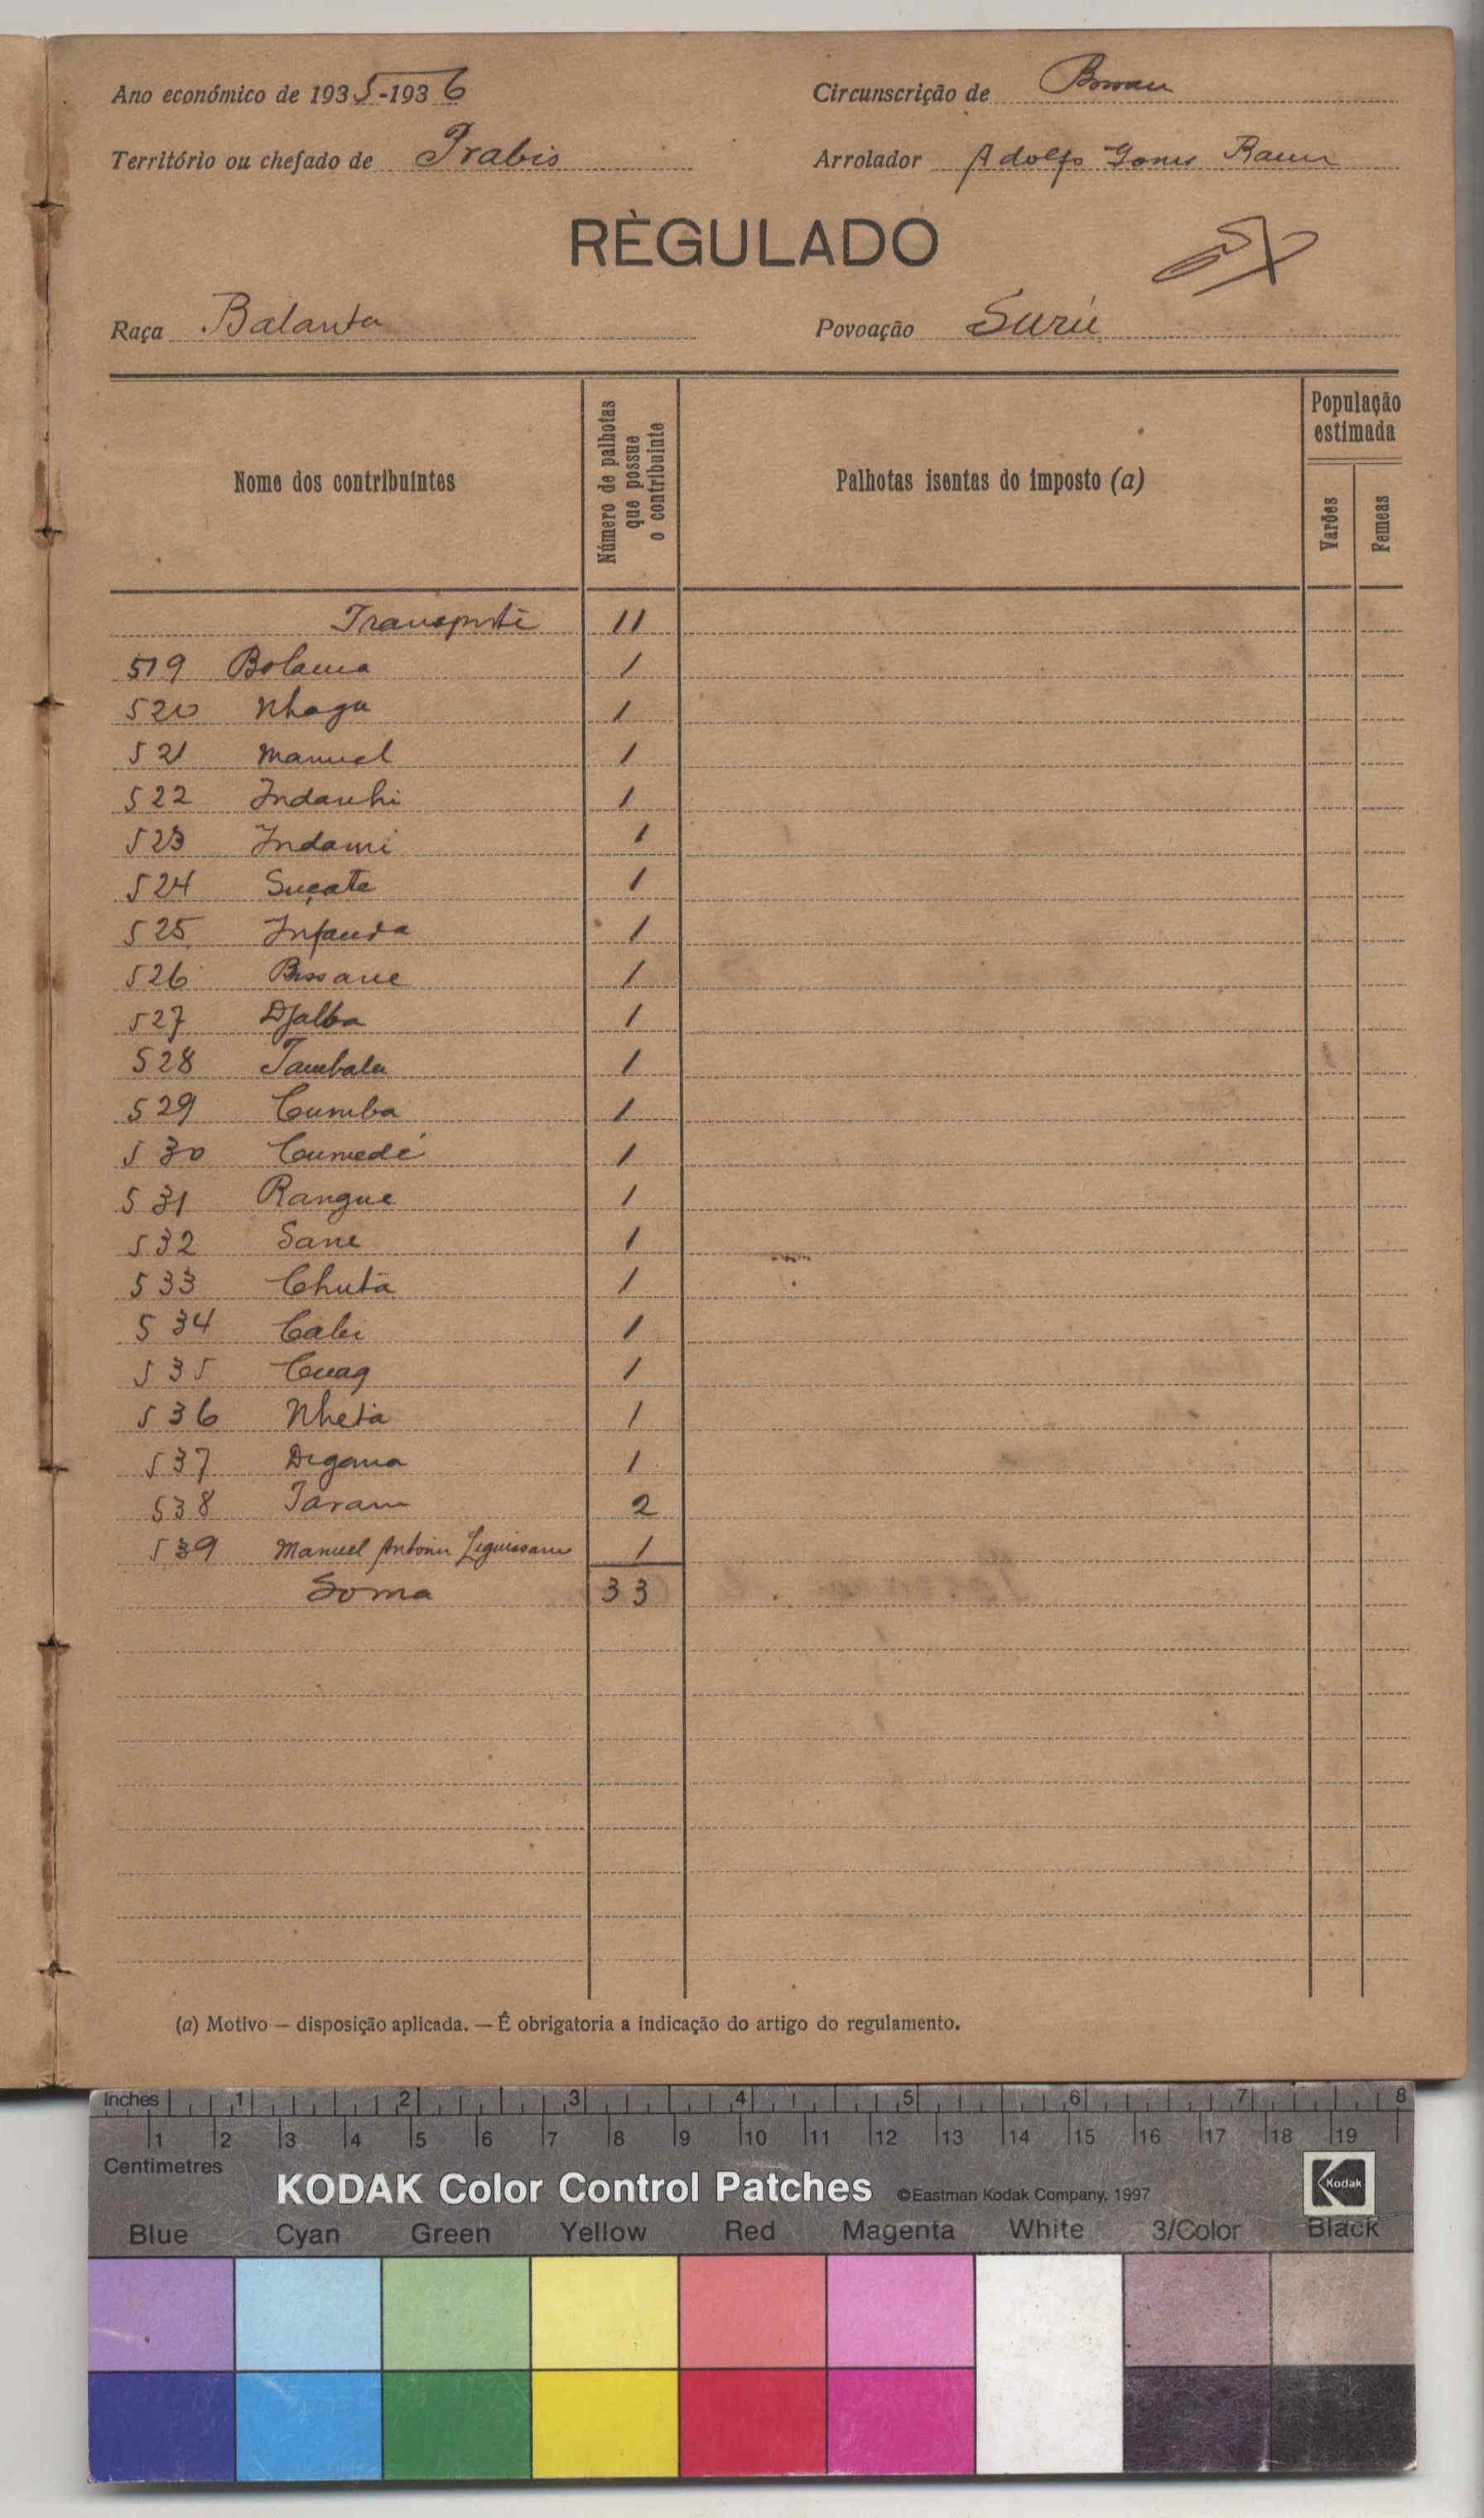 Ano económico de 1935-1936
Circunscrição de
Território ou chefado de Prabis
Arrolador Adolfo Gomes
RÈGULADO
Raça Balanta
Povoação Surú
Nome dos contribuintes
Número de palhotas que possue o contribuinte
Palhotas isentas do imposto (a)
População estimada
Varões
Femeas
Transporte 11
519 Bolama 1
520 Nhaga 1
521 Manuel 1
522 1
523 Indami 1
524 Suçate 1
525 Infanda 1
526 Bissane 1
527 Djalba 1
528 Tambala 1
529 Cumba 1
530 Cumedé 1
531 Rangue 1
532 Sane 1
533 Chuta 1
534 1
535 Cuaq 1
536 Nheta 1
537 Digana 1
538 2
539 Manuel Antonio 1
Soma 33
(a) Motivo — disposição aplicada. — É obrigatoria a indicação do artigo do regulamento.
Inches 1 2 3 4 5 6 7 8
1 2 3 4 5 6 7 8 9 10 11 12 13 14 15 16 17 18 19
Centimetres
KODAK Color Control Patches ©Eastman Kodak Company, 1997 Kodak
Blue Cyan Green Yellow Red Magenta White 3/Color Black